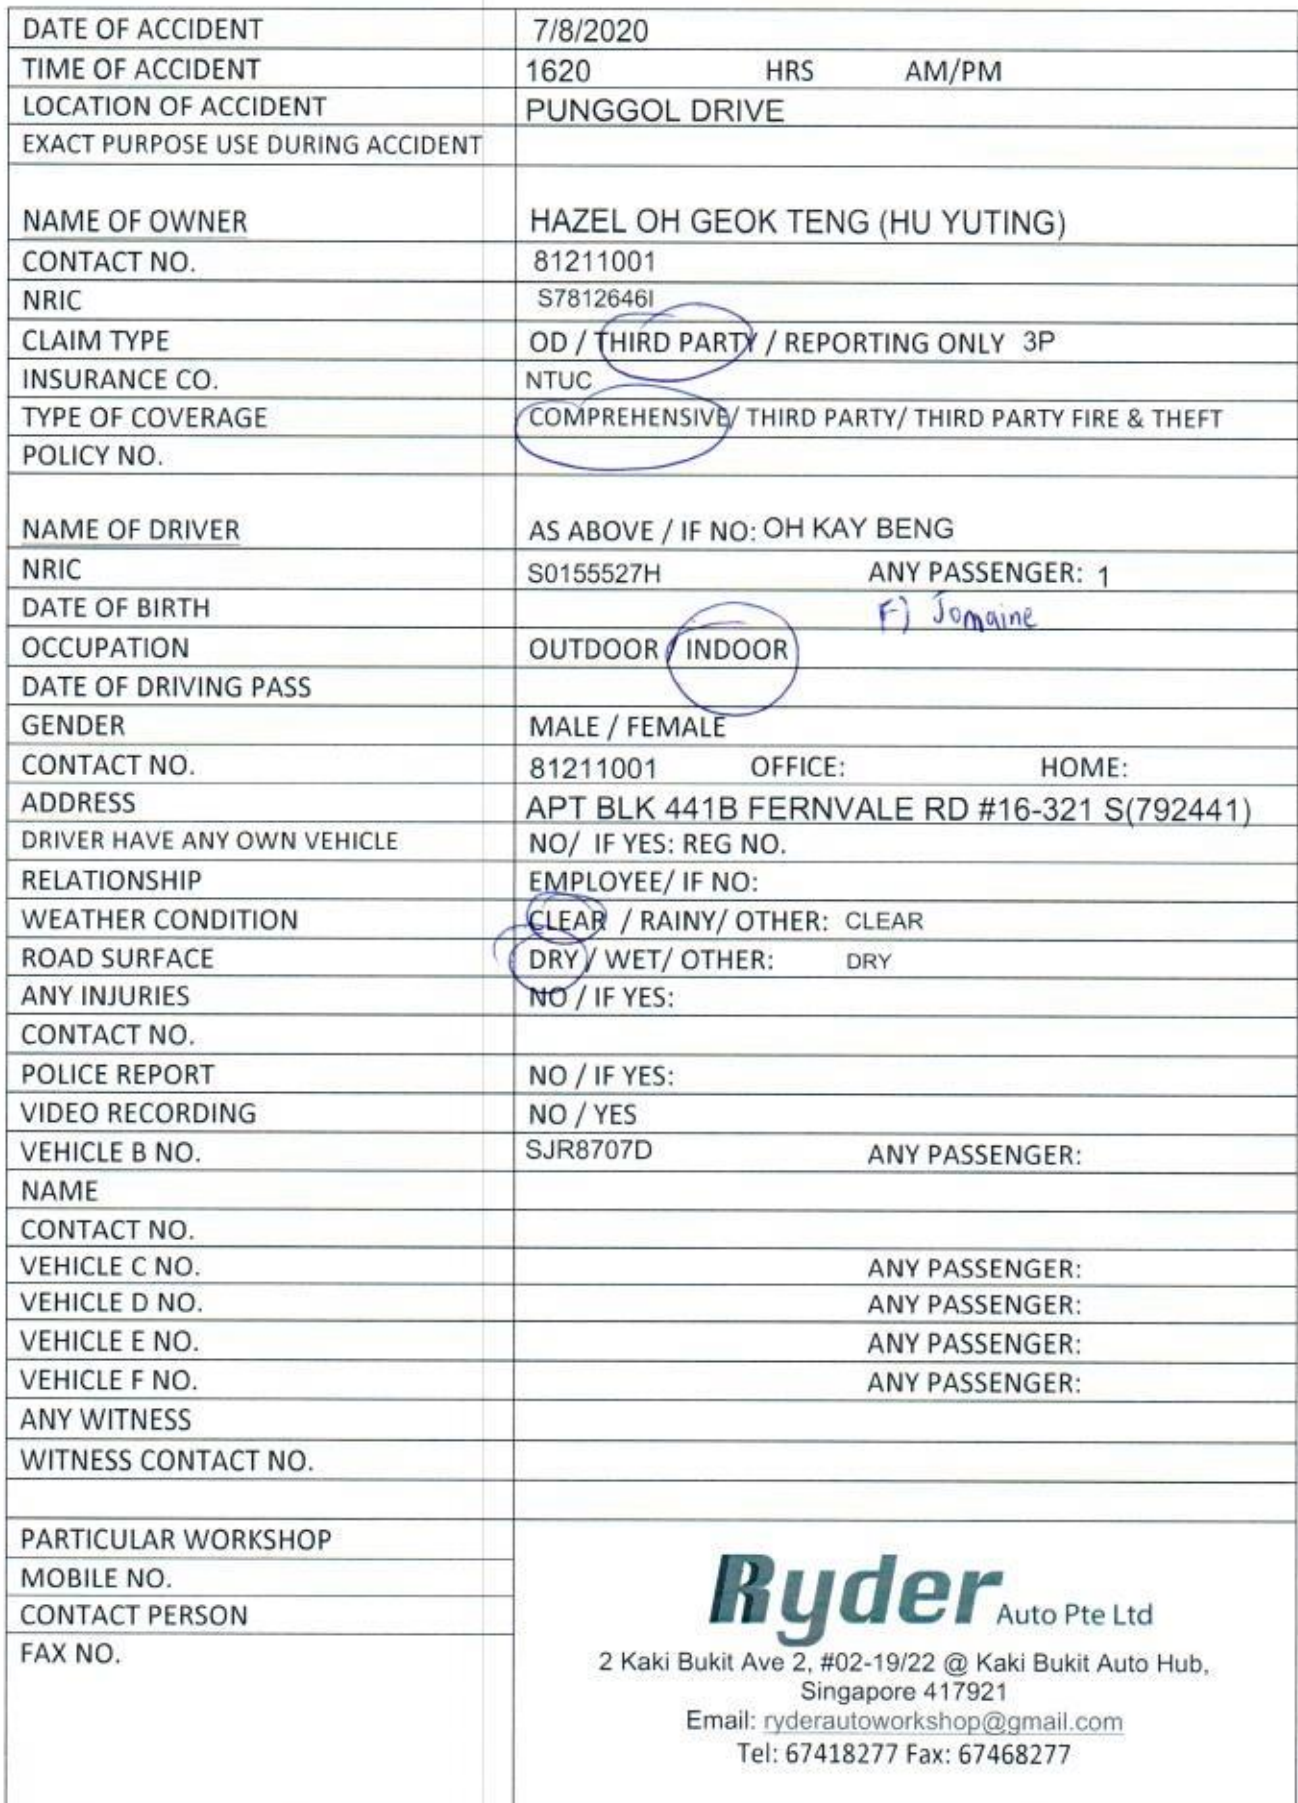 DATE OF ACCIDENT 7/8/2020
TIME OF ACCIDENT 1620 HRS AM/PM
LOCATION OF ACCIDENT PUNGGOL DRIVE
EXACT PURPOSE USE DURING ACCIDENT
NAME OF OWNER HAZEL OH GEOK TENG (HU YUTING)
CONTACT NO. 81211001
NRIC S7812646I
CLAIM TYPE OD / THIRD PARTY / REPORTING ONLY 3P
INSURANCE CO. NTUC
TYPE OF COVERAGE COMPREHENSIVE/ THIRD PARTY/ THIRD PARTY FIRE & THEFT
POLICY NO.
NAME OF DRIVER AS ABOVE / IF NO: OH KAY BENG
NRIC S0155527H ANY PASSENGER: 1
DATE OF BIRTH F) Jomaine
OCCUPATION OUTDOOR / INDOOR
DATE OF DRIVING PASS
GENDER MALE / FEMALE
CONTACT NO. 81211001 OFFICE: HOME:
ADDRESS APT BLK 441B FERNVALE RD #16-321 S(792441)
DRIVER HAVE ANY OWN VEHICLE NO/ IF YES: REG NO.
RELATIONSHIP EMPLOYEE/ IF NO:
WEATHER CONDITION CLEAR / RAINY/ OTHER: CLEAR
ROAD SURFACE DRY / WET/ OTHER: DRY
ANY INJURIES NO / IF YES:
CONTACT NO.
POLICE REPORT NO / IF YES:
VIDEO RECORDING NO / YES
VEHICLE B NO. SJR8707D ANY PASSENGER:
NAME
CONTACT NO.
VEHICLE C NO. ANY PASSENGER:
VEHICLE D NO. ANY PASSENGER:
VEHICLE E NO. ANY PASSENGER:
VEHICLE F NO. ANY PASSENGER:
ANY WITNESS
WITNESS CONTACT NO.
PARTICULAR WORKSHOP
MOBILE NO.
CONTACT PERSON
FAX NO.
Ryder Auto Pte Ltd
2 Kaki Bukit Ave 2, #02-19/22 @ Kaki Bukit Auto Hub,
Singapore 417921
Email: ryderautoworkshop@gmail.com
Tel: 67418277 Fax: 67468277